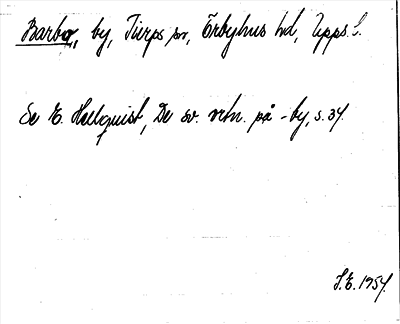 Barbo, by, Tierps sn, Örbyhus hd, Upps. l.
Se E. Hellquist, De sv. ortn. på -by, s. 34.
S.E. 1954.